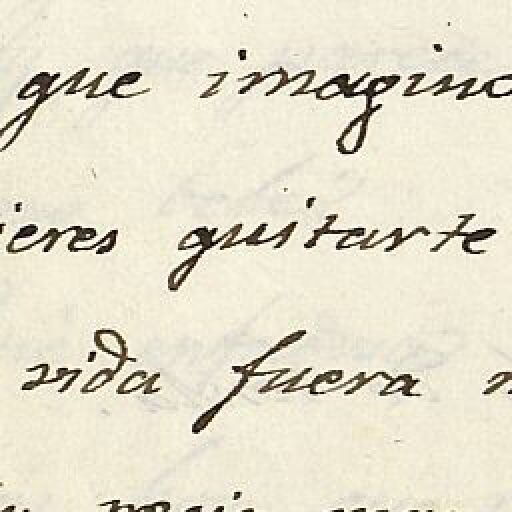 que imagino
ieres quitarte
vida fuera